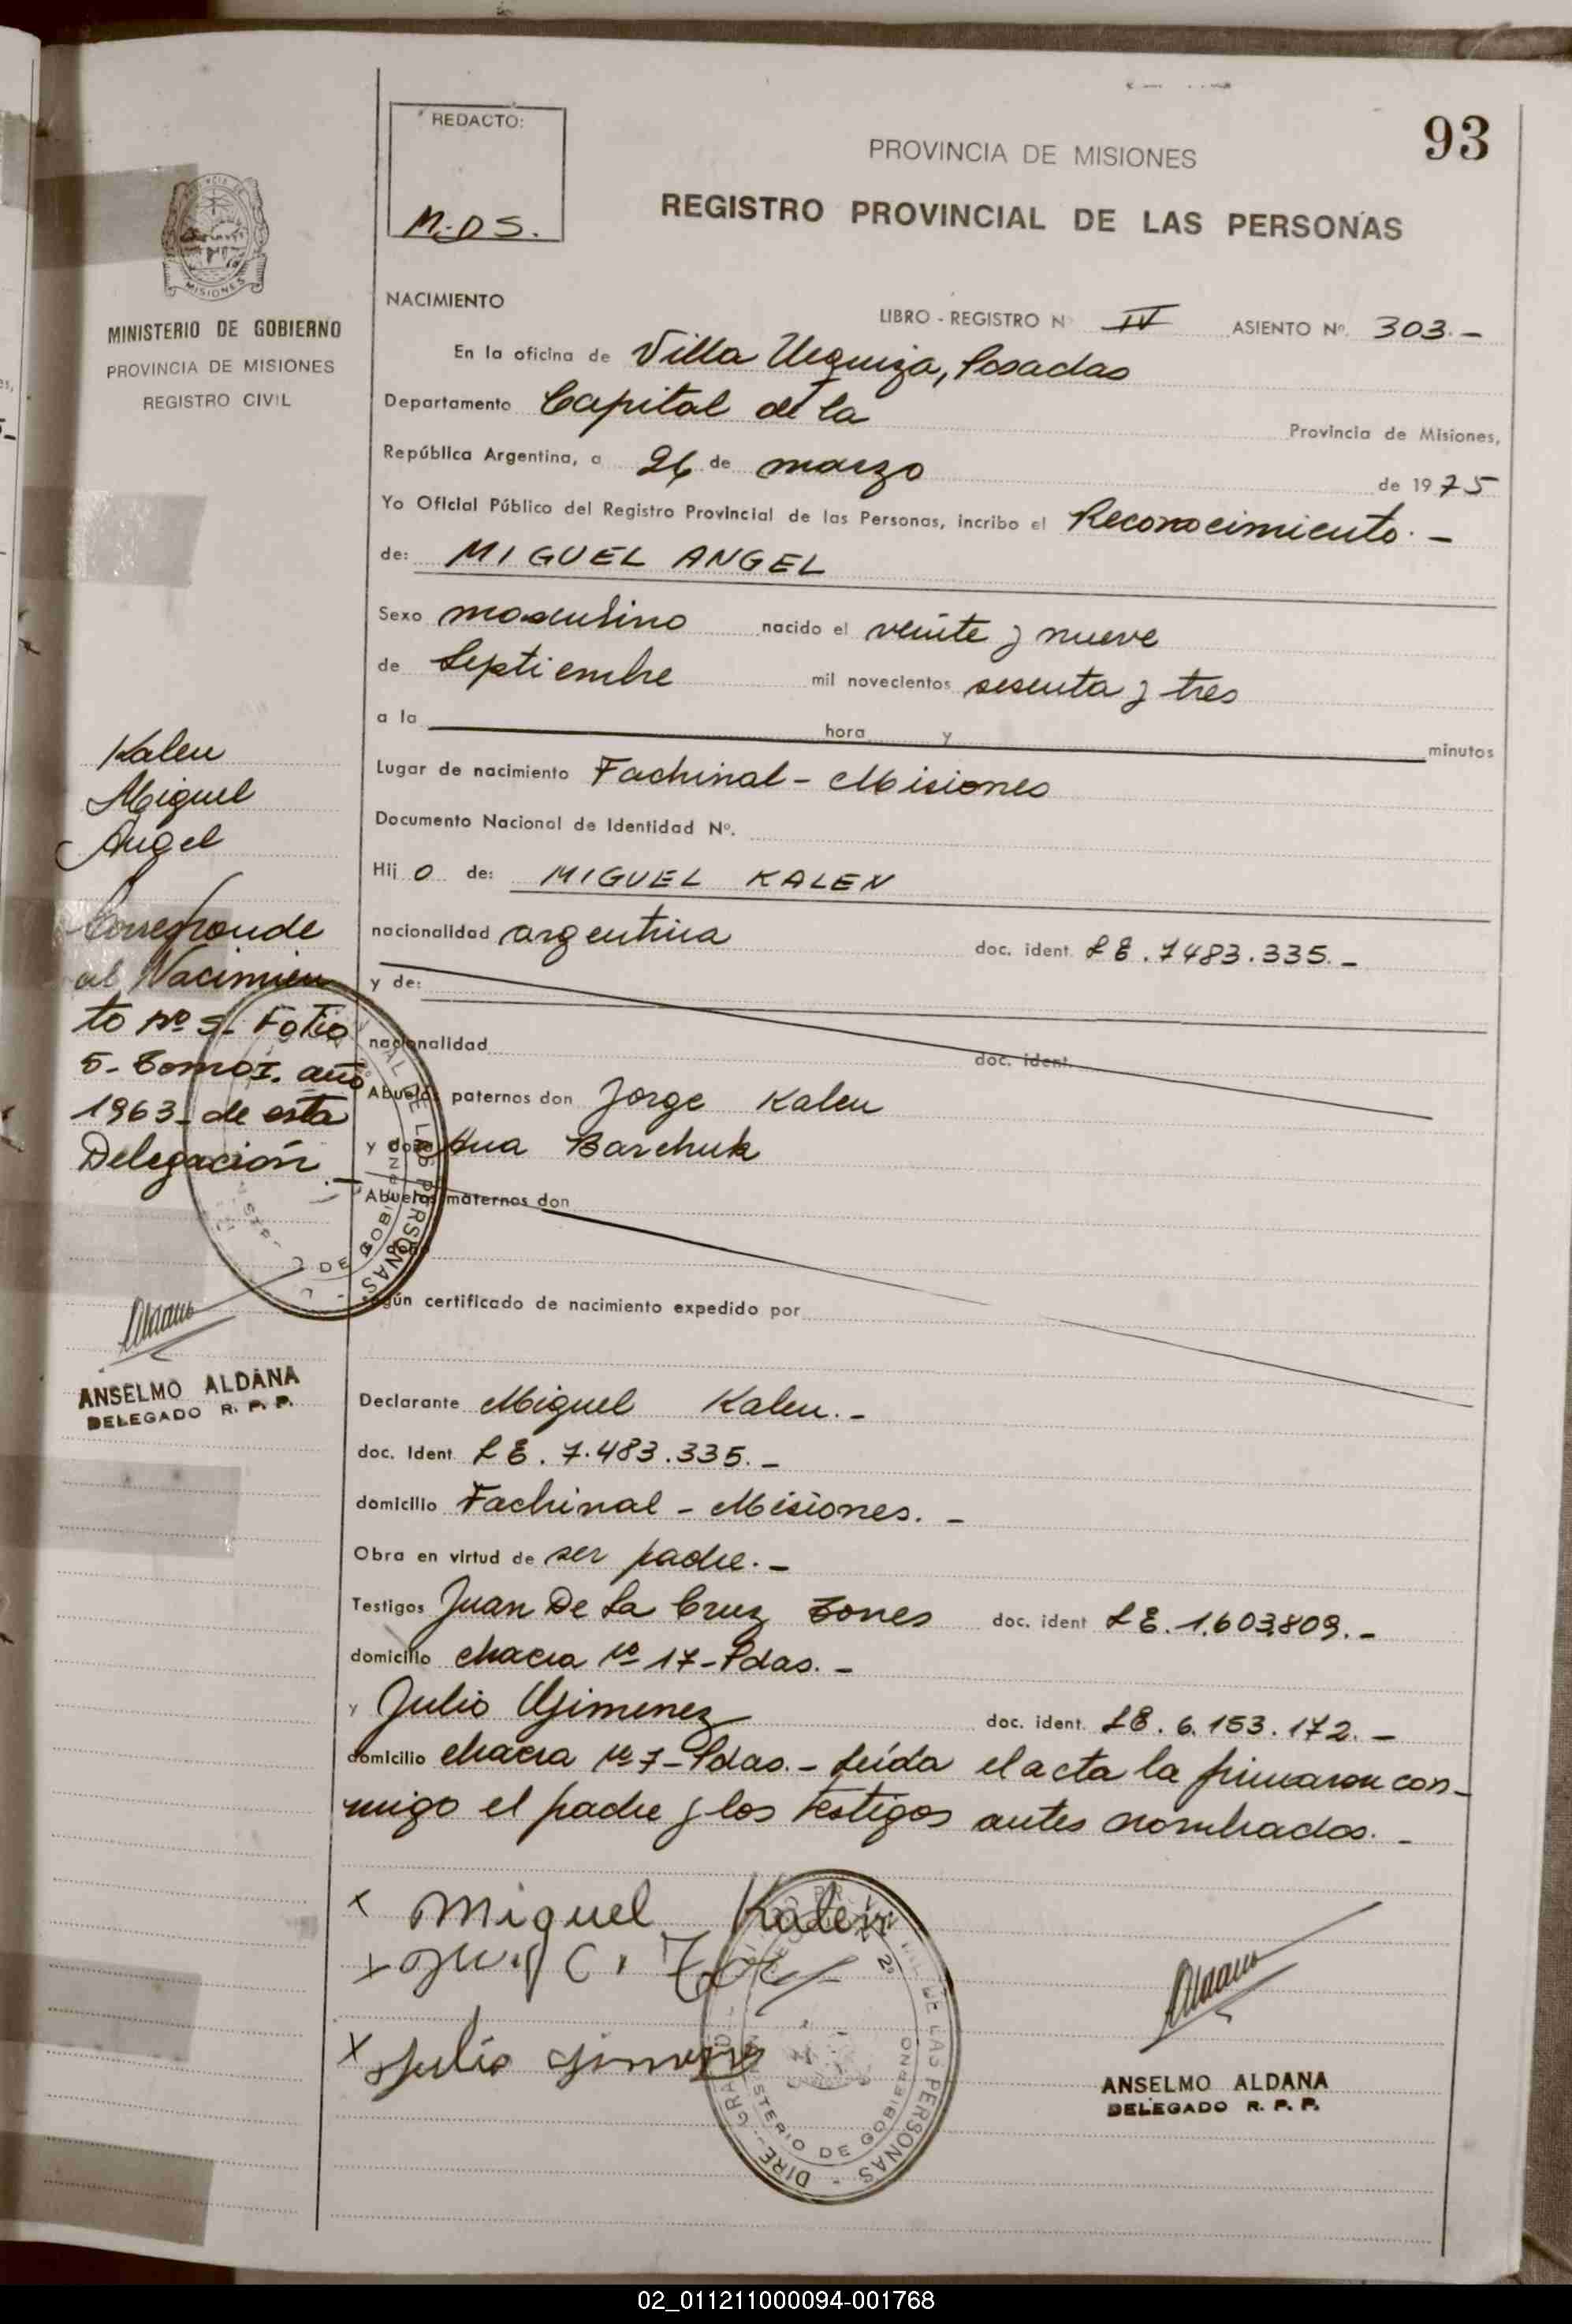 93
REDACTO:
M.D S.
PROVINCIA DE MISIONES
REGISTRO PROVINCIAL DE LAS PERSONAS
MISIONES
MINISTERIO DE GOBIERNO
PROVINCIA DE MISIONES
REGISTRO CIVIL
NACIMIENTO
LIBRO - REGISTRO N° IV ASIENTO Nº. 303.-
En la oficina de Villa Urquiza, Posadas
Departamento Capital de la Provincia de Misiones,
República Argentina, a 26 de marzo de 1975
Yo Oficial Público del Registro Provincial de las Personas, incribo el Reconocimiento.-
de: MIGUEL ANGEL
Sexo masculino nacido el veinte y nueve
de Septiembre mil novecientos sesenta y tres
a la hora y minutos
Lugar de nacimiento Fachinal - Misiones
Documento Nacional de Identidad Nº.
Hij o de: MIGUEL KALEN
nacionalidad argentina doc. ident. L E. 7483.335.-
y de:
nacionalidad doc. ident.
Abuelos paternos don Jorge Kalen
y doña Ana Barchuk
Abuelos maternos don
y doña
según certificado de nacimiento expedido por
Declarante Miguel Kalen.-
doc. Ident. L E. 7.483.335.-
domicilio Fachinal - Misiones.-
Obra en virtud de ser padre.-
Testigos Juan De La Cruz doc. ident L E. 1.603.809.-
domicilio chacra Nº 17 - Pdas.-
y Julio Gimenez doc. ident. L E. 6.153.172.-
domicilio chacra Nº 7 - Pdas.- Leída el acta la firmaron con-
migo el padre y los testigos antes nombrados.-
Kalen
Miguel
Angel
Corresponde
al Nacimien
to Nº 5- Folio
5- Tomo I. año
1963- de esta
Delegación.-
ANSELMO ALDANA
DELEGADO R. P. P.
x Miguel Kalen
x
x Julio Gimenez
DE LAS PERSONAS
MINISTERIO DE GOBIERNO
ANSELMO ALDANA
DELEGADO R. P. P.
02_011211000094-001768